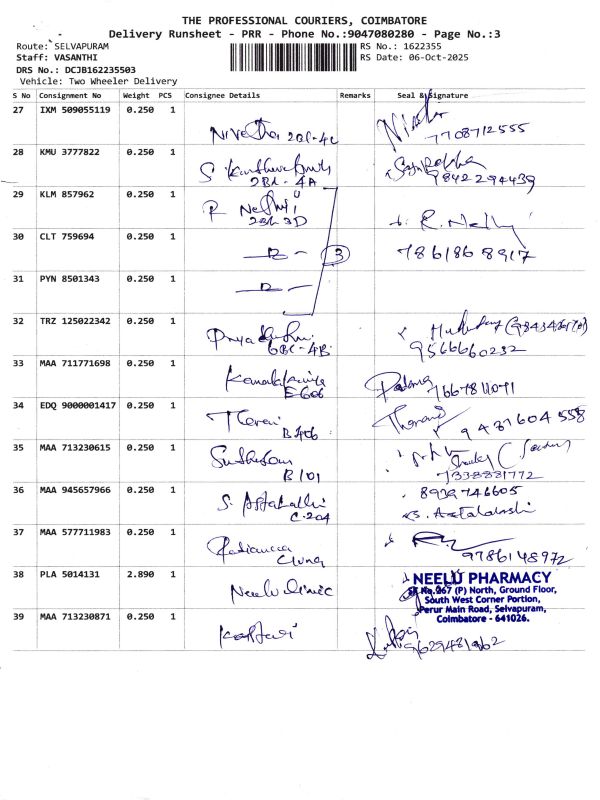 THE PROFESSIONAL COURIERS, COIMBATORE
Delivery Runsheet - PRR - Phone No.:9047080280 - Page No.:3
Route: SELVAPURAM RS No.: 1622355
Staff: VASANTHI RS Date: 06-Oct-2025
DRS No.: DCJB162235503
Vehicle: Two Wheeler Delivery
S No Consignment No Weight PCS Consignee Details Remarks Seal & Signature
27 IXM 509055119 0.250 1
Nivetha 2BL-4C
7708712555
28 KMU 3777822 0.250 1
2BL-4A
9842294439
29 KLM 857962 0.250 1
R Nethji
2BL 3D
R. Nethji
30 CLT 759694 0.250 1
3
7861868917
31 PYN 8501343 0.250 1
32 TRZ 125022342 0.250 1
6BL-4B
9566660232
33 MAA 711771698 0.250 1
E606
34 EDQ 9000001417 0.250 1
B406
9431604558
35 MAA 713230615 0.250 1
B101
7338831772
36 MAA 945657966 0.250 1
8939746605
C-204
37 MAA 577711983 0.250 1
9786148972
38 PLA 5014131 2.890 1
Neelu clinic
NEELU PHARMACY
No.267 (P) North, Ground Floor,
South West Corner Portion,
Perur Main Road, Selvapuram,
Coimbatore - 641026.
39 MAA 713230871 0.250 1
9629481962